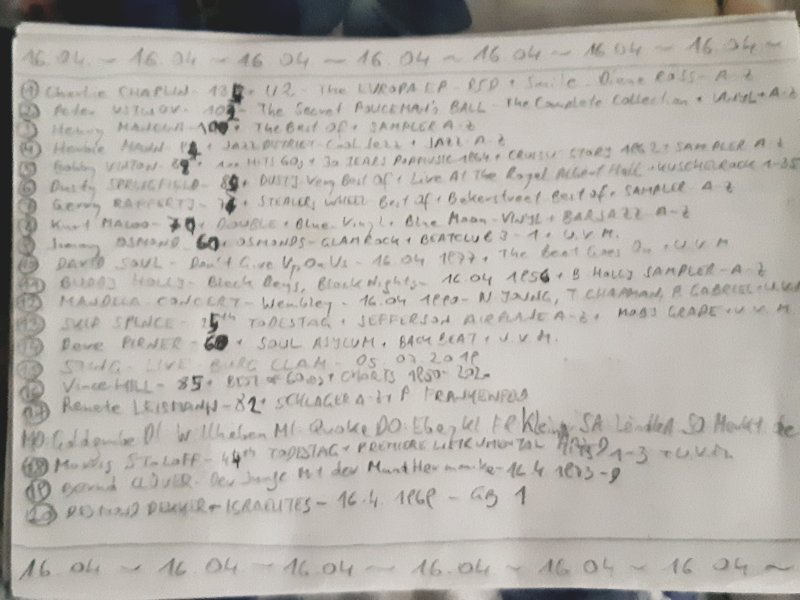 16.04. ~ 16.04 ~ 16 04 ~ 16.04 ~ 16 04 ~ 16 04 ~ 16.04 ~
1 Charlie CHAPLIN - + U2 - The EUROPA EP - RSD + Smile - Diana ROSS - A-Z
2 Peter USTINOV - - The Secret POLICEMAN's BALL - The Complete Collection + VINYL + A-Z
3 Henry MANCINI - + THE BEST Of + SAMPLER A-Z
4 Herbie MANN - + JAZZ DISTRICT - Cool Jazz + JAZZ A-Z
5 Bobby VINTON - + HITS 60s + 30 YEARS POPMUSIC 1964 + CRUISIN STORY 1962 + SAMPLER A-Z
6 Dusty SPRINGFIELD - + DUSTY Very Best Of + Live At The Royal Albert Hall + KUSCHELROCK 1-35
7 Gerry RAFFERTY - + STEALERS WHEEL Best Of + Bakerstreet Best of + SAMPLER A-Z
8 Kurt MALOO - 70 + DOUBLE + Blue - Vinyl + Blue Moon - VINYL + BARJAZZ A-Z
9 Jimmy OSMOND 60 + OSMONDS - GLAMROCK + BEATCLUB 3 - 1 + U.V.M.
10 DAVID SOUL - Don't Give Up On Us - 16.04 1977 + The Beat Goes On + U.V.M
11 BUDDY HOLLY - Black Days, Black Nights - 16.04 1956 + B HOLLY SAMPLER - A-Z
12 MANDELA CONCERT - Wembley - 16.04 1990 - N YOUNG, T CHAPMAN, P. GABRIEL +
13 SKIP SPENCE - TODESTAG + JEFFERSON AIRPLANE A-Z + MOBY GRAPE + U.V.M.
14 Dave PIRNER - 60 + SOUL ASYLUM + BACKBEAT + U.V.M.
15 STING - LIVE - BURG CLAM - 05.07.2019
16 Vince HILL - 85 + BEST of 60s + CHARTS 1950 - 2020
17 Renate LEISMANN - 82 + SCHLAGER A-Z + P FRANKENFELD
MO Goldambe DI Wilhelven MI Quake DO Eberkl FR Klein SA Ländler SO Markt
18 Morris STOLOFF - 44th TODESTAG + PREMIERE INSTRUMENTAL HITS 1-3 + U.V.M.
19 Bernd CLÜVER - Der Junge Mit der Mundharmonika - 16.4 1973 - D
20 DESMOND DEKKER + ISRAELITES - 16.4. 1969 - GB 1
16.04 ~ 16.04 ~ 16.04 ~ 16.04 ~ 16 04 ~ 16 04 ~